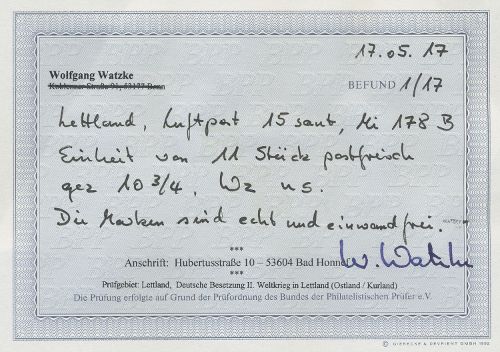 17.05.17
Wolfgang Watzke
Koblenzer Straße 91, 53177 Bonn
BEFUND 1/17
Lettland, Luftpost 15 sant, Mi 178 B
Einheit von 11 Stück postfrisch
gez 10 3/4, Wz us.
Die Marken sind echt und einwandfrei.
WATZKE
***
Anschrift: Hubertusstraße 10 – 53604 Bad Honnef
W. Watzke
***
Prüfgebiet: Lettland, Deutsche Besetzung II. Weltkrieg in Lettland (Ostland / Kurland)
Die Prüfung erfolgte auf Grund der Prüfordnung des Bundes der Philatelistischen Prüfer e.V.
© GIESECKE & DEVRIENT GMBH 1992